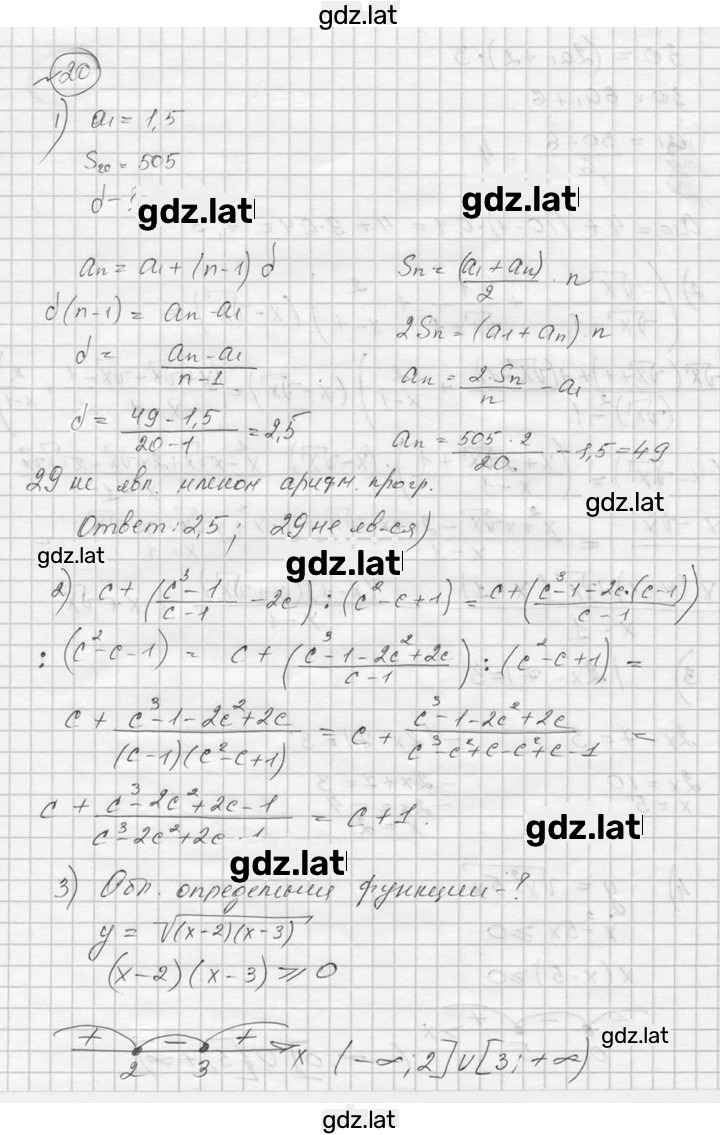 gdz.lat
20
1) a1 = 1,5
S20 = 505
d - ?
gdz.lat
gdz.lat
an = a1 + (n-1) d
d(n-1) = an - a1
d = (an - a1)/(n-1)
d = (49 - 1,5)/(20 - 1) = 2,5
Sn = (a1 + an)/2 · n
2Sn = (a1 + an) · n
an = (2·Sn)/n - a1
an = (505 · 2)/20. - 1,5 = 49
29 не явл. членом арифм. прогр.
gdz.lat
Ответ: 2,5 ; 29 не яв-ся)
gdz.lat
gdz.lat
2) c + ((c³ - 1)/(c - 1) - 2c) : (c² - c + 1) = c + ((c³ - 1 - 2c·(c - 1))/(c - 1))
: (c² - c - 1) = c + ((c³ - 1 - 2c² + 2c)/(c - 1)) : (c² - c + 1) =
c + (c³ - 1 - 2c² + 2c)/((c - 1)(c² - c + 1)) = c + (c³ - 1 - 2c² + 2c)/(c³ - c² + c - c² + c - 1) =
c + (c³ - 2c² + 2c - 1)/(c³ - 2c² + 2c - 1) = c + 1.
gdz.lat
gdz.lat
3) Обл. определения функции - ?
y = √((x-2)(x-3))
(x-2)(x-3) ⩾ 0
+ - +
2 3 x (-∞; 2] ∪ [3; +∞)
gdz.lat
gdz.lat